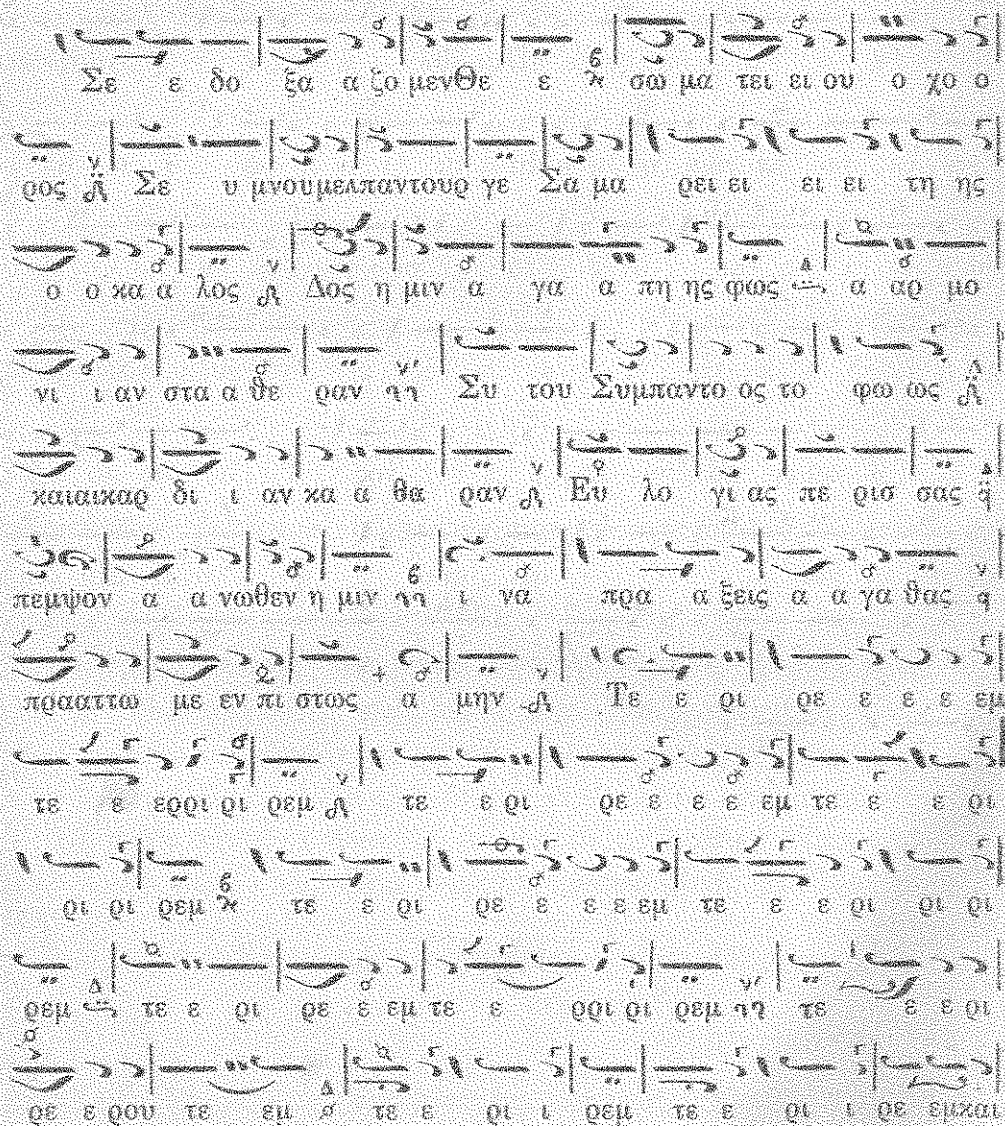 Σε ε δο ξα α ζο μεν Θε ε σω μα τει ει ου ο χο ο
ρος Σε υ μνουμελπαντουρ γε Σα μα ρει ει ει ει τη ης
ο ο κα α λος Δος η μιν α γα α πη ης φως α αρ μο
νι ι αν στα α θε ραν Συ του Συμπαντο ος το φω ως
καιαικαρ δι ι αν κα α θα ραν Ευ λο γι ας πε ρισ σας
πεμψον α α νωθεν η μιν ι να πρα α ξεις α α γα θας
πρααττω με εν πι στως α μην Τε ε ρι ρε ε ε ε εμ
τε ε ερρι ρι ρεμ τε ε ρι ρε ε ε ε εμ τε ε ε ρι
ρι ρι ρεμ τε ε ρι ρε ε ε ε εμ τε ε ε ρι ρι ρι
ρεμ τε ε ρι ρε ε εμ τε ε ρρι ρι ρεμ τε ε ε ρι
ρε ε ρου τε εμ τε ε ρι ι ρεμ τε ε ρι ι ρε εμκαι